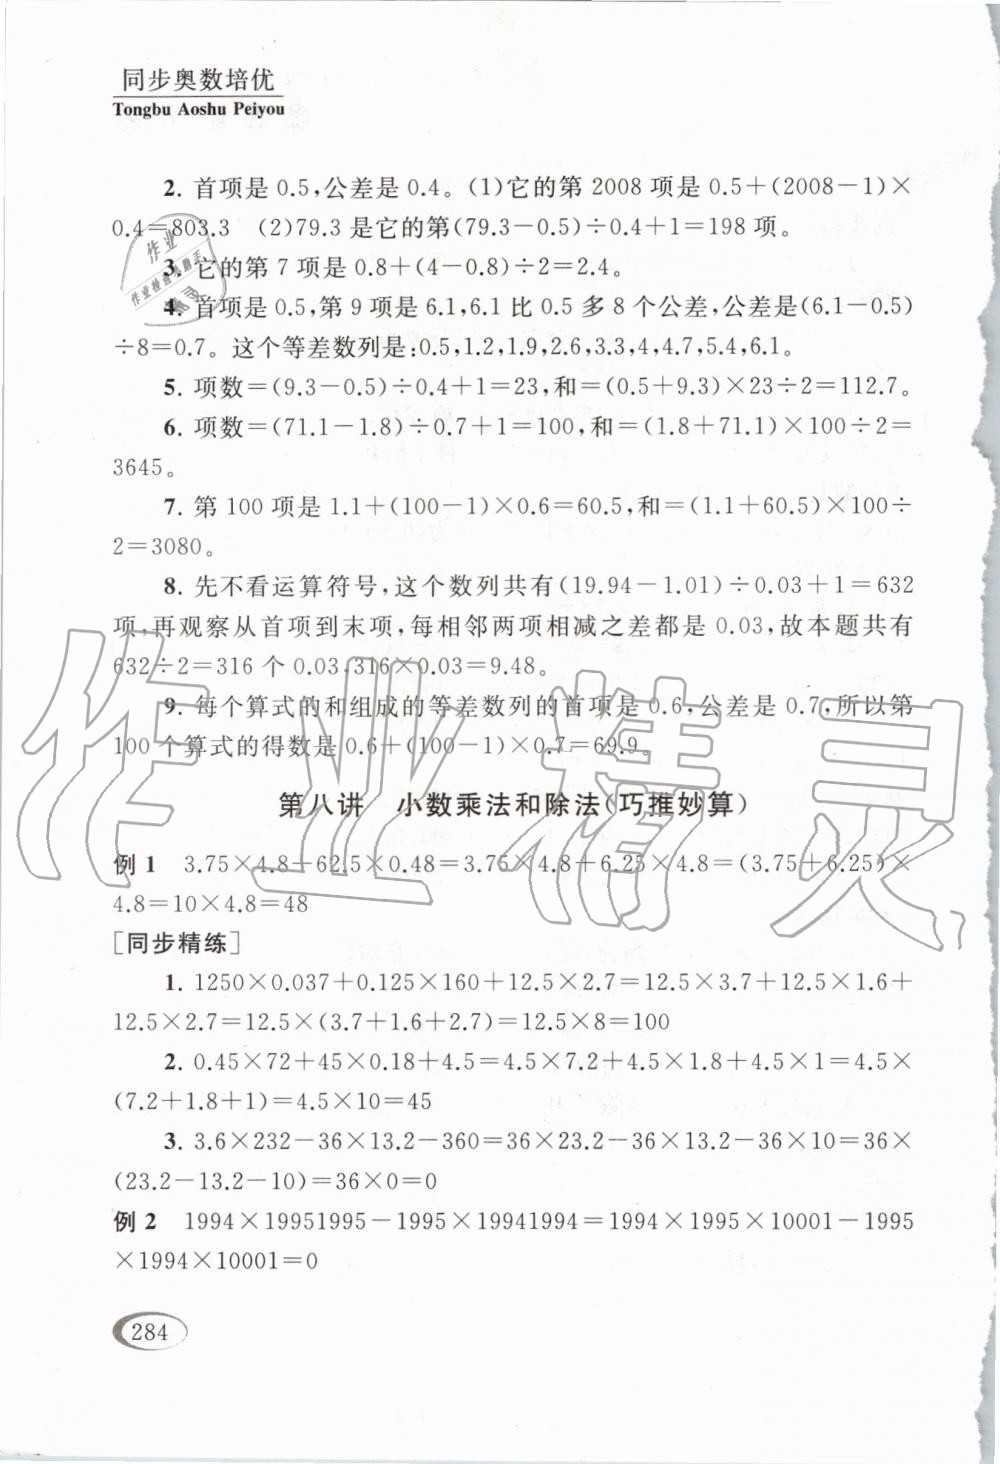 同步奥数培优
Tongbu Aoshu Peiyou
2. 首项是 0.5,公差是 0.4。(1)它的第 2008 项是 0.5+(2008-1)×
0.4=803.3 (2)79.3 是它的第(79.3-0.5)÷0.4+1=198 项。
3. 它的第 7 项是 0.8+(4-0.8)÷2=2.4。
4. 首项是 0.5,第 9 项是 6.1,6.1 比 0.5 多 8 个公差,公差是(6.1-0.5)
÷8=0.7。这个等差数列是:0.5,1.2,1.9,2.6,3.3,4,4.7,5.4,6.1。
5. 项数=(9.3-0.5)÷0.4+1=23,和=(0.5+9.3)×23÷2=112.7。
6. 项数=(71.1-1.8)÷0.7+1=100,和=(1.8+71.1)×100÷2=
3645。
7. 第 100 项是 1.1+(100-1)×0.6=60.5,和=(1.1+60.5)×100÷
2=3080。
8. 先不看运算符号,这个数列共有(19.94-1.01)÷0.03+1=632
项,再观察从首项到末项,每相邻两项相减之差都是 0.03,故本题共有
632÷2=316 个 0.03,316×0.03=9.48。
9. 每个算式的和组成的等差数列的首项是 0.6,公差是 0.7,所以第
100 个算式的得数是 0.6+(100-1)×0.7=69.9。
第八讲 小数乘法和除法(巧推妙算)
例 1 3.75×4.8+62.5×0.48=3.75×4.8+6.25×4.8=(3.75+6.25)×
4.8=10×4.8=48
[同步精练]
1. 1250×0.037+0.125×160+12.5×2.7=12.5×3.7+12.5×1.6+
12.5×2.7=12.5×(3.7+1.6+2.7)=12.5×8=100
2. 0.45×72+45×0.18+4.5=4.5×7.2+4.5×1.8+4.5×1=4.5×
(7.2+1.8+1)=4.5×10=45
3. 3.6×232-36×13.2-360=36×23.2-36×13.2-36×10=36×
(23.2-13.2-10)=36×0=0
例 2 1994×19951995-1995×19941994=1994×1995×10001-1995
×1994×10001=0
284
作业精灵